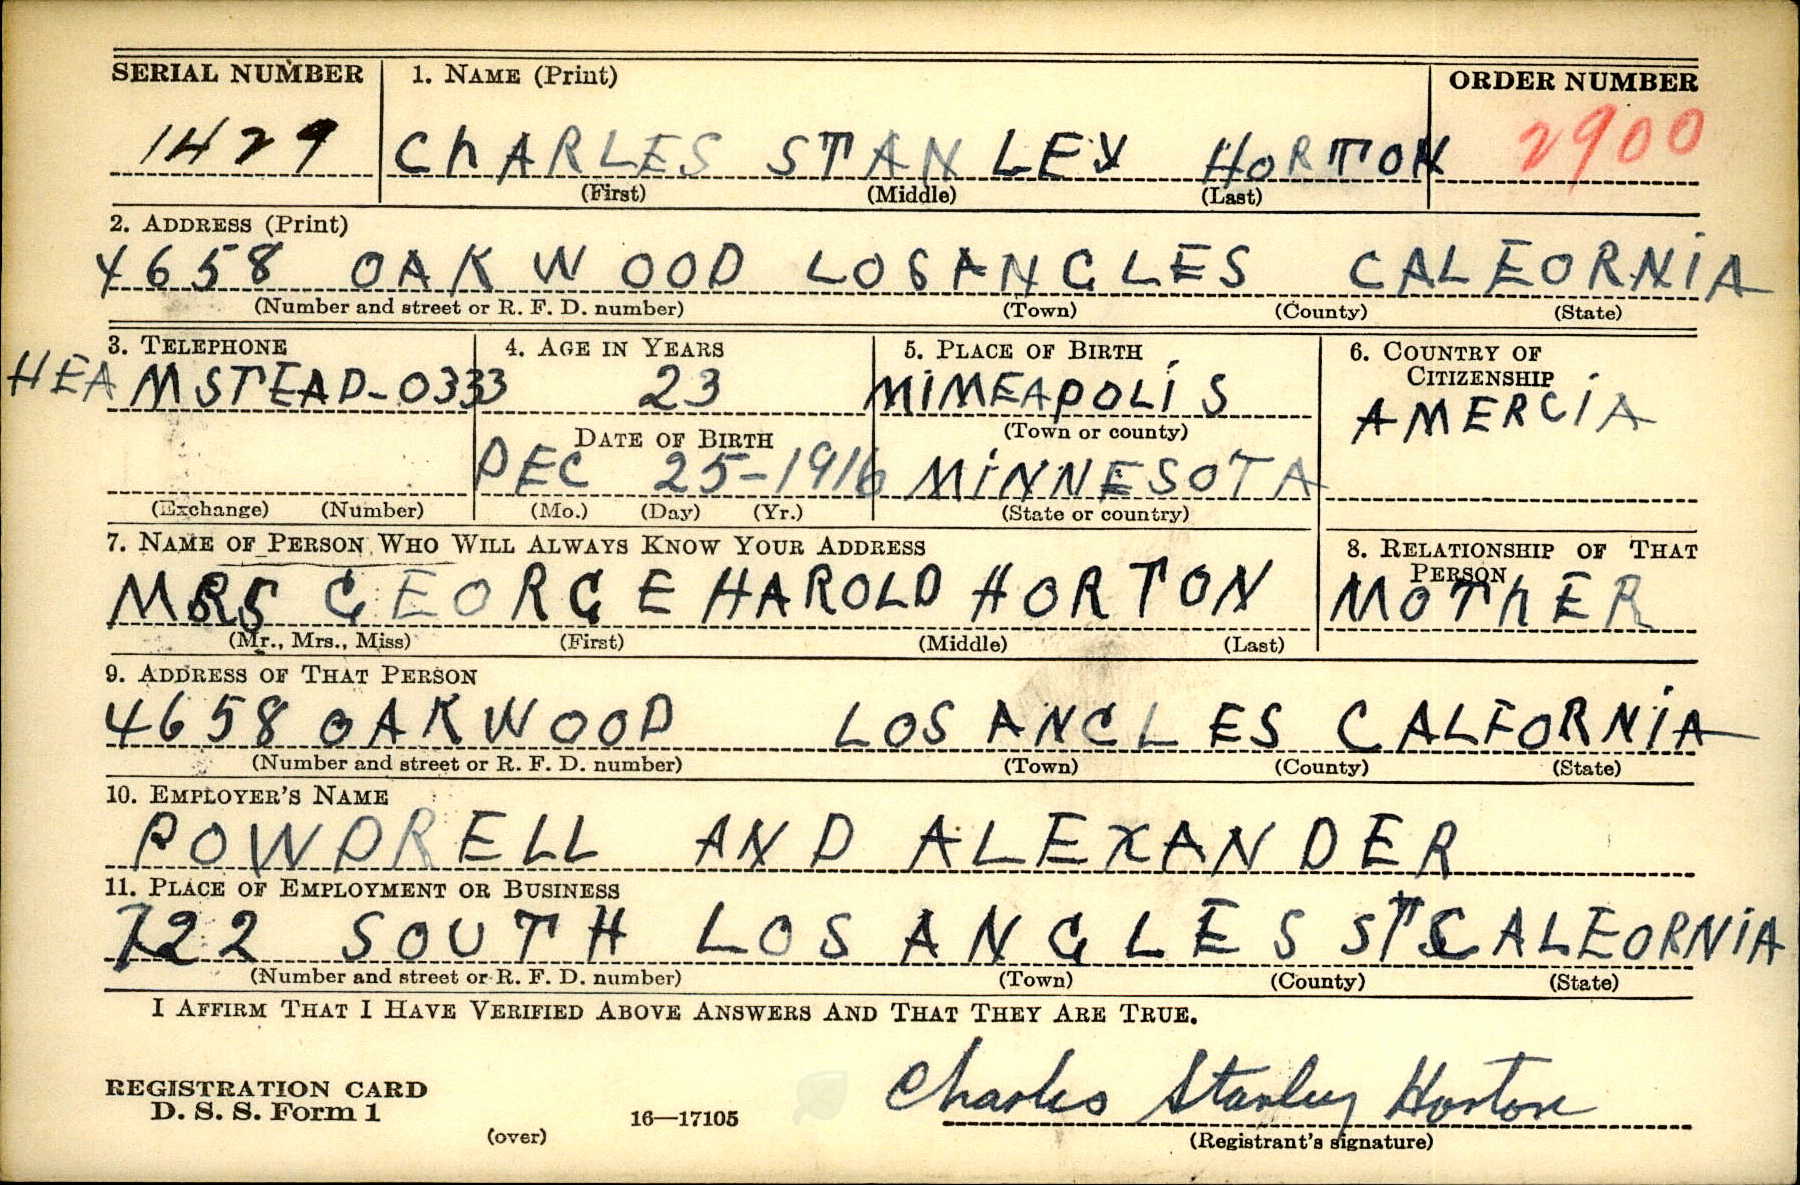 SERIAL NUMBER 1. NAME (Print) ORDER NUMBER
1429 ChARLES STANLEY HORTON 2900
(First) (Middle) (Last)
2. ADDRESS (Print)
4658 OAKWOOD LOSANGLES CALEORNiA
(Number and street or R. F. D. number) (Town) (County) (State)
3. TELEPHONE 4. AGE IN YEARS 5. PLACE OF BIRTH 6. COUNTRY OF CITIZENSHIP
HEAMSTEAD-0333 23 MiMEAPOLiS AMERCiA
DATE OF BIRTH (Town or county)
DEC 25-1916 MiNNESOTA
(Exchange) (Number) (Mo.) (Day) (Yr.) (State or country)
7. NAME OF PERSON WHO WILL ALWAYS KNOW YOUR ADDRESS 8. RELATIONSHIP OF THAT PERSON
MRS GEORGE HAROLD HORTON MOThER
(Mr., Mrs., Miss) (First) (Middle) (Last)
9. ADDRESS OF THAT PERSON
4658 OAKWOOD LOS ANGLES CALFORNiA
(Number and street or R. F. D. number) (Town) (County) (State)
10. EMPLOYER'S NAME
POWDRELL AND ALEXANDER
11. PLACE OF EMPLOYMENT OR BUSINESS
722 SOUTH LOS ANGLES STS CALEORNiA
(Number and street or R. F. D. number) (Town) (County) (State)
I AFFIRM THAT I HAVE VERIFIED ABOVE ANSWERS AND THAT THEY ARE TRUE.
Charles Stanley Horton
REGISTRATION CARD
D. S. S. Form 1 16—17105
(over) (Registrant's signature)